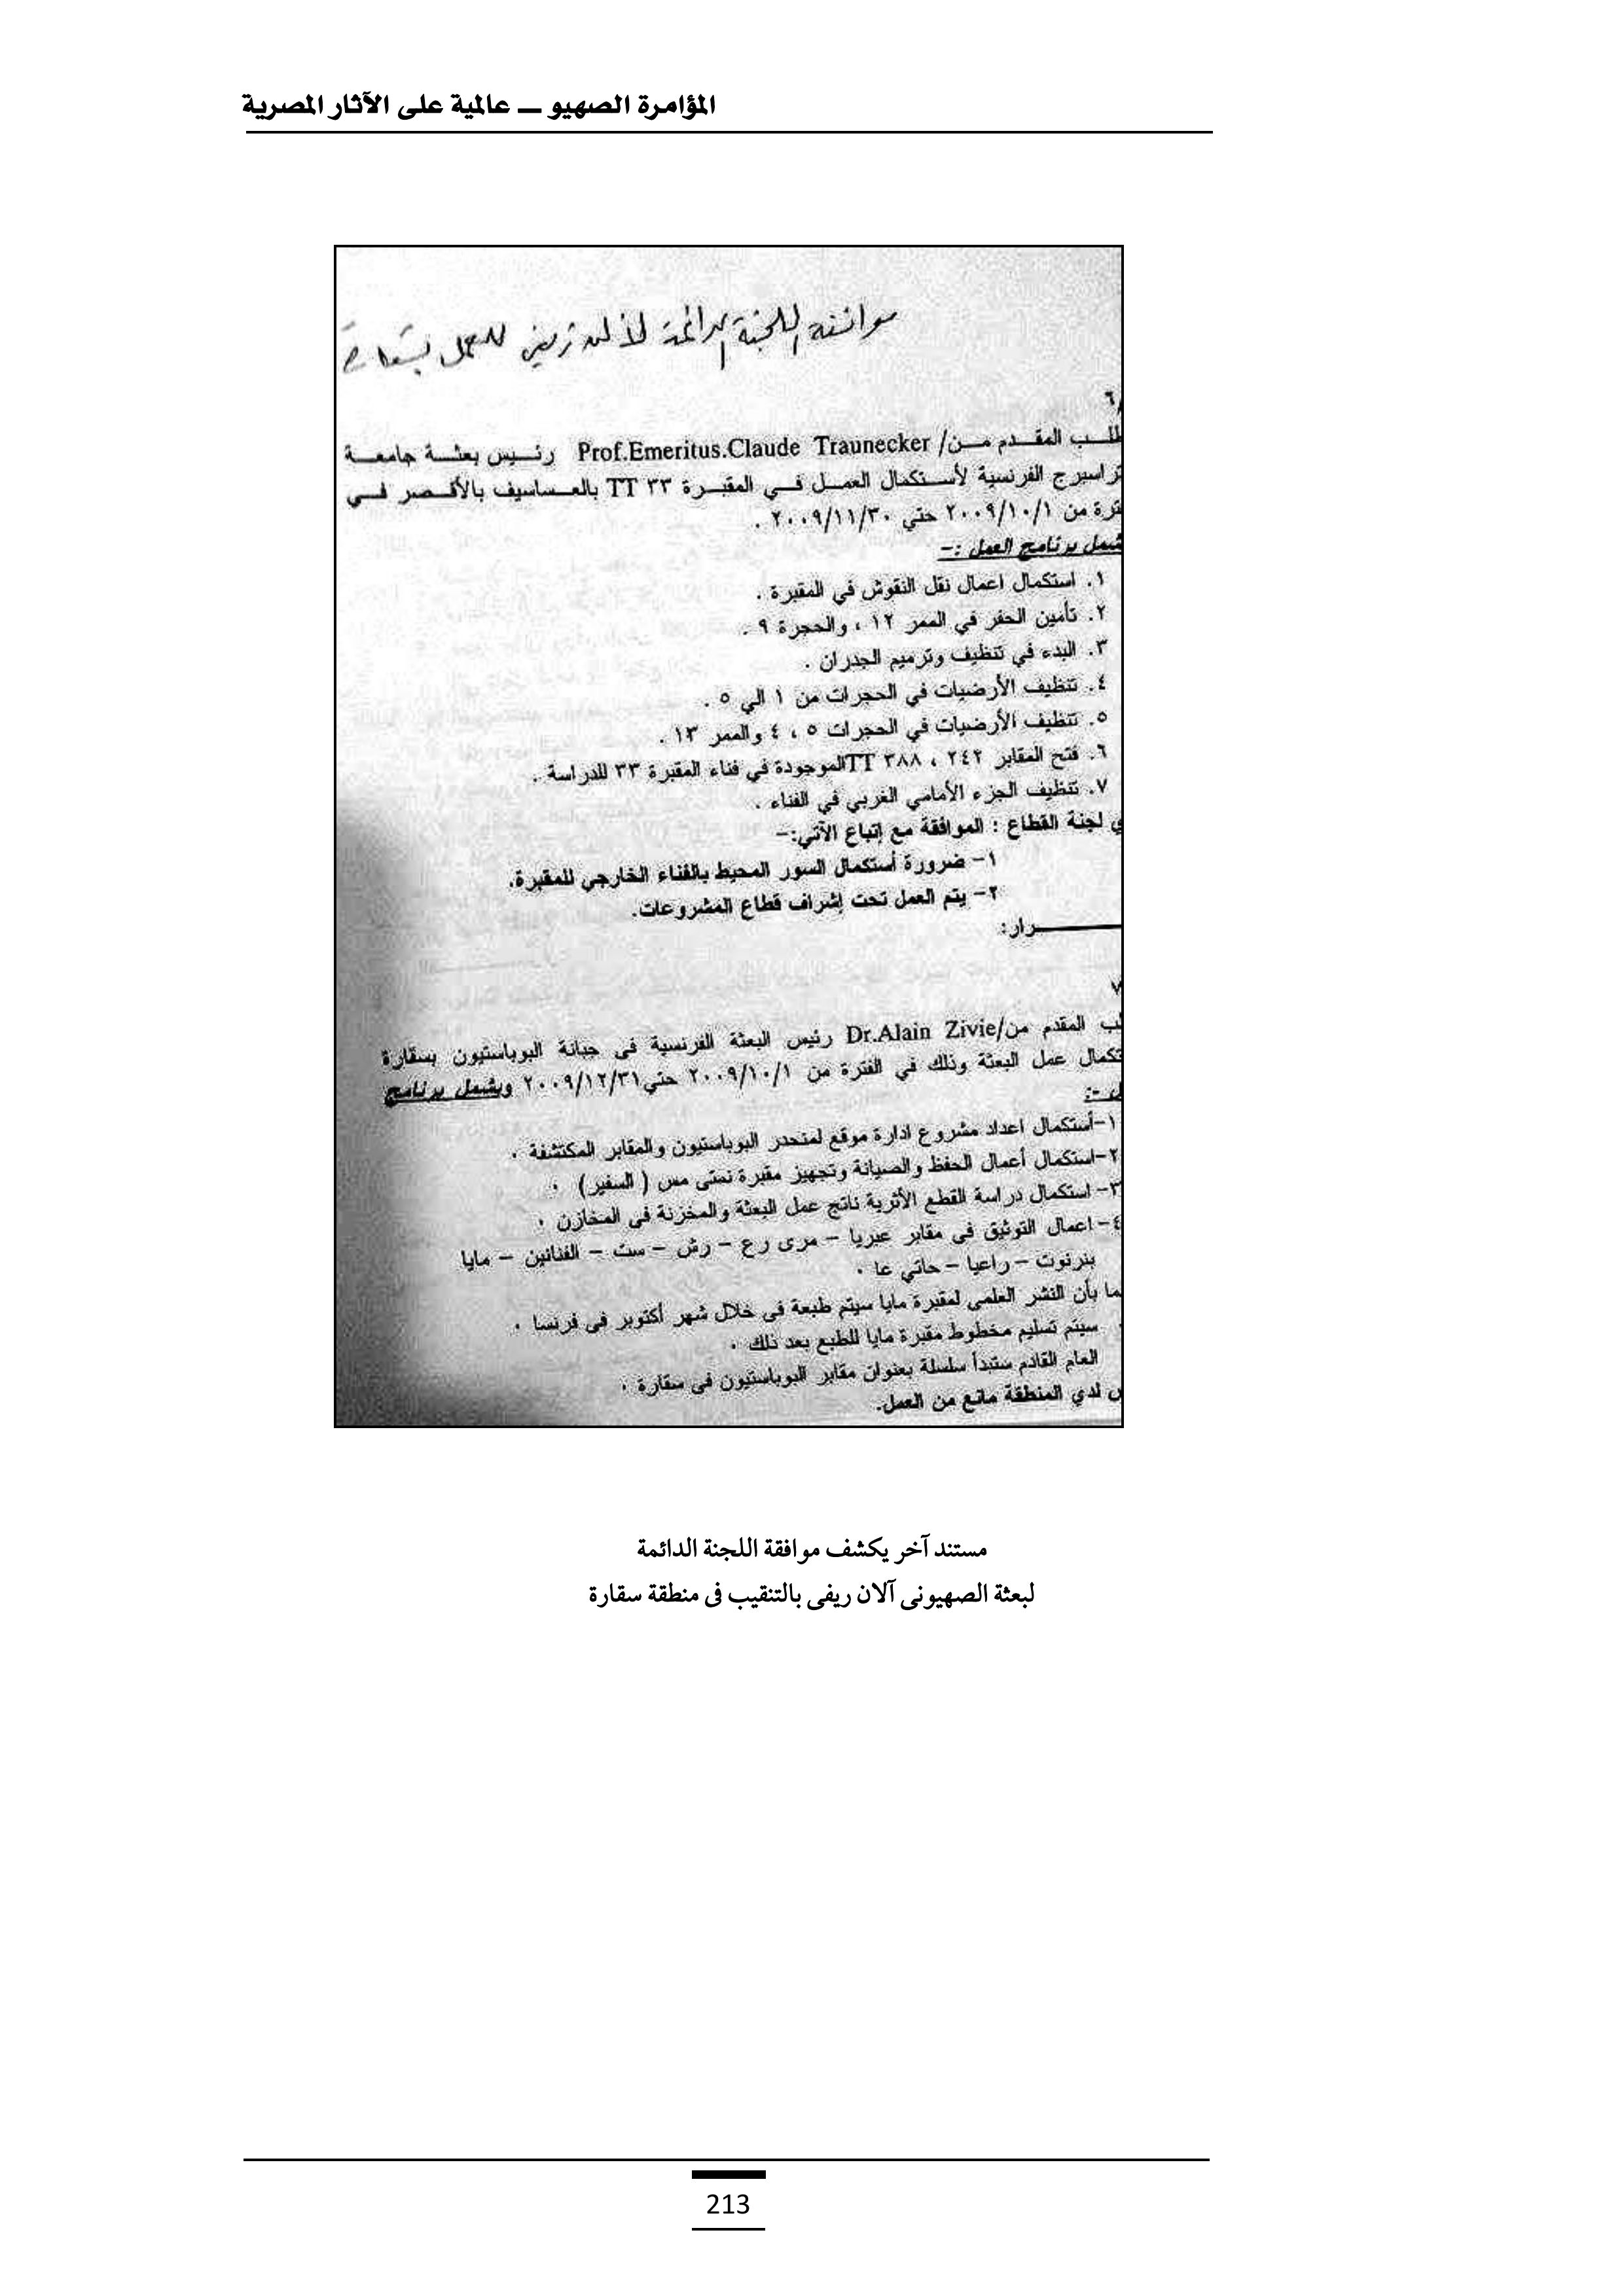 المؤامرة الصهيو ــ عالمية على الآثار المصرية
موافقة اللجنة الدائمة لألان زيفى للعمل بسقارة
٦/
طلب المقدم من/ Prof.Emeritus.Claude Traunecker رئيس بعثة جامعة
تراسبرج الفرنسية لأستكمال العمل في المقبرة TT ٣٣ بالعساسيف بالأقصر في
ترة من ٢٠٠٩/١٠/١ حتي ٢٠٠٩/١١/٣٠ .
شمل برنامج العمل :-
١. استكمال اعمال نقل النقوش في المقبرة .
٢. تأمين الحفر في الممر ١٢ ، والحجرة ٩ .
٣. البدء في تنظيف وترميم الجدران .
٤. تنظيف الأرضيات في الحجرات من ١ الي ٥ .
٥. تنظيف الأرضيات في الحجرات ٥ ، ٤ والممر ١٣ .
٦. فتح المقابر ٢٤٢ ، ٣٨٨ TTالموجودة في فناء المقبرة ٣٣ للدراسة .
٧. تنظيف الجزء الأمامي الغربي في الفناء .
ي لجنة القطاع : الموافقة مع إتباع الآتي:-
١- ضرورة أستكمال السور المحيط بالفناء الخارجي للمقبرة.
٢- يتم العمل تحت إشراف قطاع المشروعات.
ـرار:
٧
لب المقدم من/Dr.Alain Zivie رئيس البعثة الفرنسية فى جبانة البوباستيون بسقارة
تكمال عمل البعثة وذلك في الفترة من ٢٠٠٩/١٠/١ حتي٢٠٠٩/١٢/٣١ ويشمل برنامج
ل :-
١-أستكمال اعداد مشروع ادارة موقع لمنحدر البوباستيون والمقابر المكتشفة .
٢-استكمال أعمال الحفظ والصيانة وتجهيز مقبرة نحتى مس ( السفير) .
٣- استكمال دراسة القطع الأثرية ناتج عمل البعثة والمخزنة فى المخازن .
٤- اعمال التوثيق فى مقابر عبريا - مرى رع - رش - ست - الفنانين - مايا
بنرنوت - راعيا - حاتي عا .
ما بأن النشر العلمى لمقبرة مايا سيتم طبعة فى خلال شهر أكتوبر فى فرنسا .
سيتم تسليم مخطوط مقبرة مايا للطبع بعد ذلك .
العام القادم ستبدأ سلسلة بعنوان مقابر البوباستيون فى سقارة .
س لدي المنطقة مانع من العمل.
مستند آخر يكشف موافقة اللجنة الدائمة
لبعثة الصهيونى آلان ريفى بالتنقيب فى منطقة سقارة
213